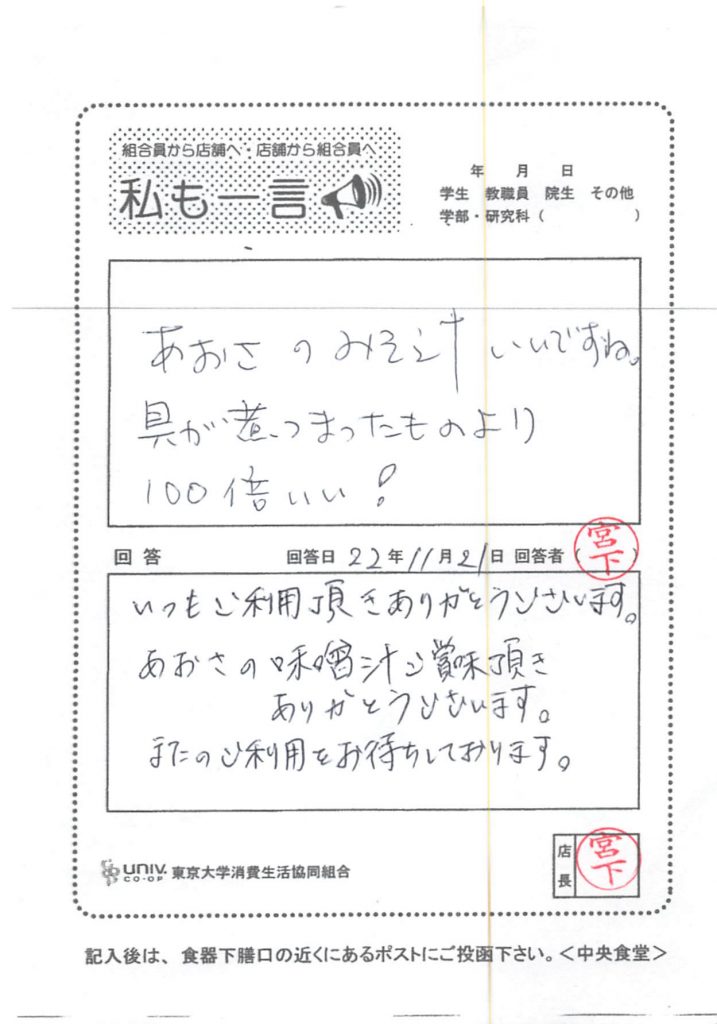 組合員から店舗へ・店舗から組合員へ
私も一言
年 月 日
学生 教職員 院生 その他
学部・研究科 ( )
あおさのみそ汁いいですね。
具が煮つまったものより
100倍いい!
回答 回答日 22年11月21日 回答者 (宮下)
いつもご利用頂きありがとうございます。
あおさの味噌汁ご賞味頂き
ありがとうございます。
またのご利用をお待ちしております。
UNIV. CO-OP 東京大学消費生活協同組合
店長 宮下
記入後は、食器下膳口の近くにあるポストにご投函下さい。<中央食堂>